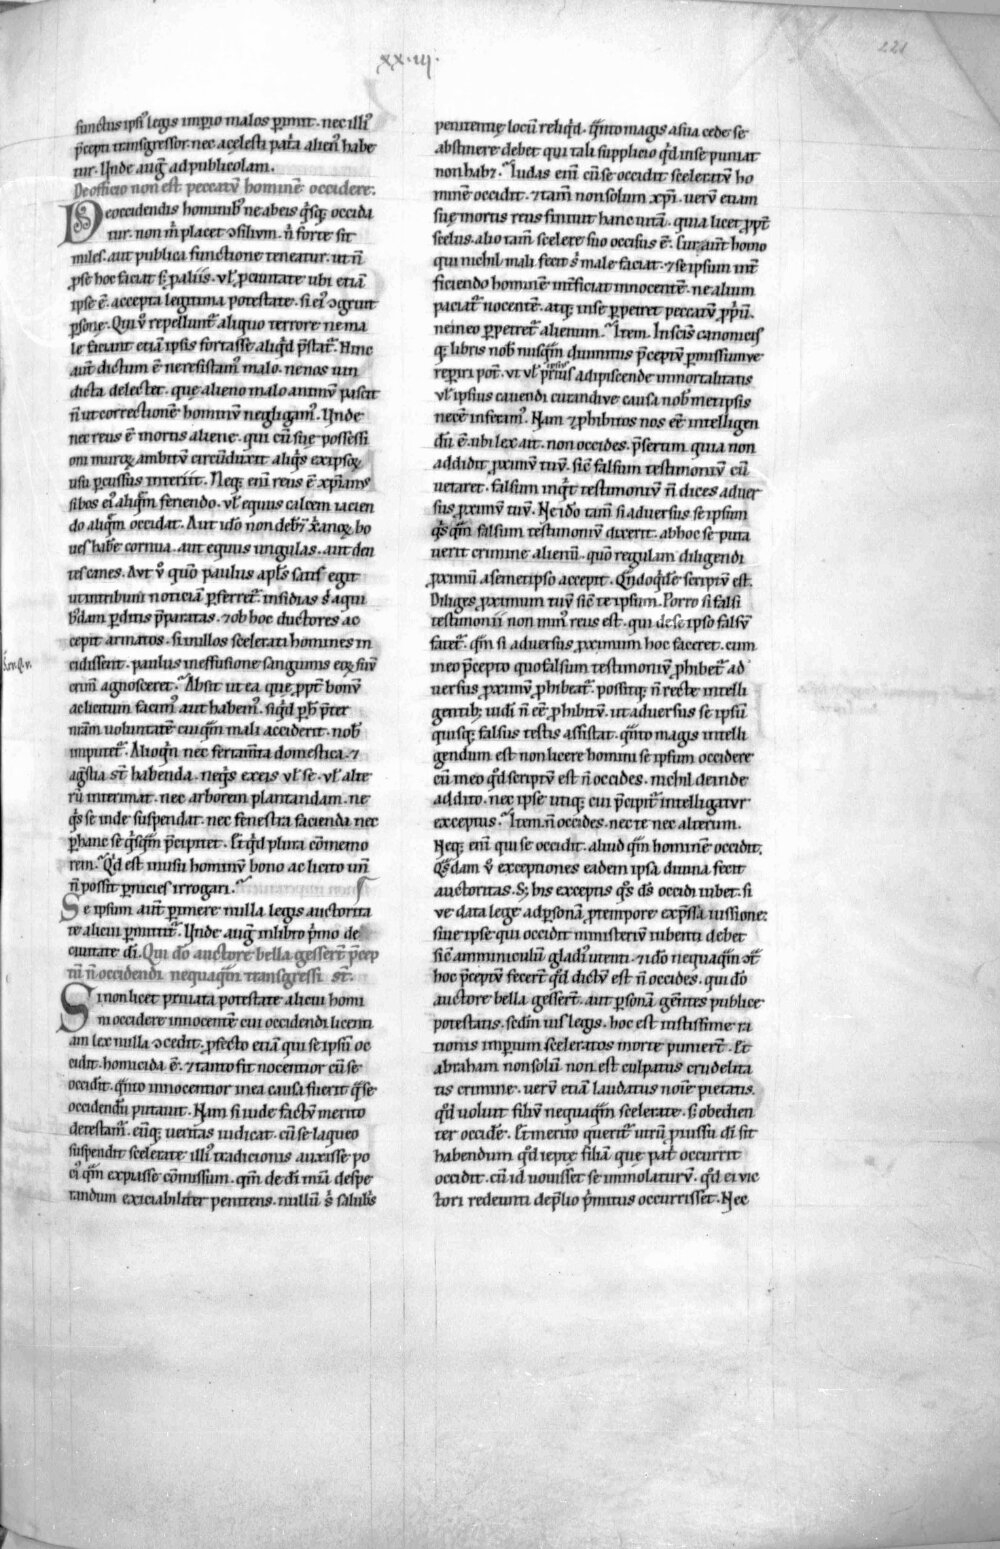 xx·iij·
221
functus ipsi᷒ legis imperio malos p̄imit. nec illi᷒
p̄cepti transgressor. nec a celesti pat̄a alien᷒ habe
tur. Unde aug̅ ad publicolam.
De officio non est peccatū hominē occidere.
De occidendis hominib᷒ ne ab eis q̇sq; occida
tur. non m̄ placet ɔsilium. n̄ forte sit
miles. aut publica functione teneatur. ut n̄
ꝓ se hoc faciat s; ꝓ aliis. vl̄ ꝓ ciuitate ubi etiā
ipse ē. accepta legitima potestate. si ei᷒ ɔgruit
ꝑsone. Qui v̄ repellunt᷒ aliquo terrore ne ma
le faciant etiā ipsis fortasse aliq̇d p̄stat᷒. Hinc
aut̄ dictum ē ne resistam᷒ malo. ne nos uin
dicta delectet. que alieno malo animū pascit
n̄ ut correctionē hominū negligam᷒. Unde
nec reus ē mortis aliene. qui cū sue possessi
oni muroꝝ ambitū circūduxit. aliq̇s ex ipsoꝝ
usu ꝑcussus interiit. Neq; eni᷒ reus ē xp̄ian᷒
si bos ei᷒ aliq̄m feriendo. vl̄ equus calcem iacien
do aliq̄m occidat. Aut ido non deb̄nt xp̄ianoꝝ bo
ues habe᷒ cornua. aut equus ungulas. aut den
tes canes. Aut v̄ quo paulus apl̄s satis egit
ut in tribuni noticiā ꝑferret᷒. insidias s᷒ a qui
b᷒dam ꝑditis p̄paratas. ⁊ ob hoc ductores ac
cepit armatos. si in illos scelerati homines in
cidissent. paulus in effusione sanguinis eoꝝ suū
crim̄ agnosceret. Absit ut ea que ꝓpt̄ bonū
ac licitum facim᷒ aut habem᷒. siq̇d ꝑ h̄ p̄ter
n̄ram voluntatē cuiq̄m mali acciderit. nob᷒
imputet᷒. Alioq̇n nec ferram̄ta domestica. ⁊
ag̅stia s̄t habenda. ne q̇s ex eis vl̄ se. vl̄ alte
rū interimat. nec arborem plantandam. ne
q̇s se inde suspendat. nec fenestra facienda nec
ꝑ hanc se q̇sq̄m p̄cipitet. Et q̇d plura cōmemo
rem. Q̇d est in usu hominū bono ac licito un̄
n̄ possit ꝑnicies irrogari.
Se ipsum aut̄ ꝑimere nulla legis auctorita
te alicui ꝑmittit᷒. Unde aug̅ in libro p̄mo de
ciuitate d̄i. Qui dō auctore bella gesser̄t p̄cep
tū n̄ occidendi nequaq̄m transgressi s̄t.
Si non licet priuata potestate alicui homi
ni occidere innocentē cui occidendi licenti
am lex nulla ɔcedit. ꝓfecto etiā qui se ipsū oc
cidit. homicida ē. ⁊ tanto fit nocentior cū se
occidit. q̄nto innocentior in ea causa fuerit q̄ se
occidendū putauit. Nam si iude factū merito
detestam᷒. eūq; veritas iudicat. cū se laqueo
suspendit scelerate illi᷒ tradicionis auxisse po
ci᷒ q̄m expiasse cōmissum. q̄m de d̄i mīa despe
randum exiciabiliter penitens. nullū s᷒ salubris
penitentię locū reliq̇d. q̄nto magis a sua cede se
abstinere debet qui tali supplicio q̇d in se puniat
non habꝫ. Iudas eni᷒ cū se occidit sceleratū ho
minē occidit. ⁊ tam̄ non solum xp̄i. verū etiam
suę mortis reus finiuit hanc uitā. quia licet ꝓpt̄
scelus. alio tam̄ scelere suo occisus ē. Cur aut̄ homo
qui nichil mali fecit s᷒ male faciat. ⁊ se ipsum int̄
ficiendo hominē int̄ficiat innocentē. ne alium
paciat᷒ nocentē. atq; in se ꝑpetret peccatū ꝓp̄iū.
ne in eo ꝑpetret᷒ alienum. Item. In scis canonicis
q; libris nob᷒ nusq̄m diuinitus p̄ceptū ꝑmissumue
reperiri pot̄. ut vl̄ ipsius adipiscende inmortalitatis
vl̄ ipsius cauendi curandiue causa nob᷒ met ipsis
necē inferam᷒. Nam ⁊ ꝓhibitos nos eē intelligen
dū ē. ubi lex ait. non occides. p̄sertim quia non
addidit ꝓximū tuū. sic̄ falsum testimoniū cū
uetaret. falsum inq̇t testimoniū n̄ dices aduer
sus ꝓximū tuū. Nec ido tam̄ si aduersus se ipsum
q̇s q̄m falsum testimoniū dixerit. ab hoc se puta
uerit crimine alienū. quō regulam diligendi
ꝓximū a semetipso accepit. Q̄ndoq̇de scriptū est.
Diliges ꝓximum tuū sic̄ te ipsum. Porro si falsi
testimonii non min᷒ reus est. qui de se ipso falsū
fatet᷒. q̄m si aduersus ꝓximum hoc faceret. cum
in eo p̄cepto quo falsum testimoniū ꝓhibet᷒ ad
uersus ꝓximū ꝓhibeat᷒. possitq; n̄ recte intelli
gentib; uidi n̄ eē ꝓhibitū. ut aduersus se ipsū
quisq; falsus testis assistat. q̄nto magis intelli
gendum est non licere homini se ipsum occidere
cū in eo q̇d scriptū est n̄ occides. nichil deinde
addito. nec ipse utiq; cui p̄cipit᷒ intelligatur
exceptus. Item. n̄ occides. nec te nec alterum.
Neq; eni᷒ qui se occidit. aliud q̄m hominē occidit.
Q̇sdam v̄ exceptiones eadem ipsa diuina fecit
auctoritas. S; his exceptis q̇s d̄s occidi iubet. si
ue data lege ad ꝑsonā ꝓ tempore exp̄ssa iussione.
sine ipse qui occidit ministeriū iubenti debet
sic̄ amminiculū gladi᷒ utenti. ⁊ ido nequaq̄m ɔt̄
hoc p̄ceptū fecer̄t q̇d dictū est n̄ occides. qui dō
auctore bella gesser̄t. aut ꝑsonā gerētes publice
potestatis. sedm iuīs legis. hoc est iustissime ra
tionis imperium sceleratos morte punier̄t. Et
abraham non solū non est culpatus crudelita
tis crimine. verū etiā laudatus noīe pietatis.
q̇d uoluit filiū nequaq̄m scelerate. s; obedien
ter occide᷒. Et merito querit᷒ utrū ꝓ iussu d̄i sit
habendum q̇d iepte filiā que pat̄ occurrit
occidit. cū id uouisset se immolaturū. q̇d ei vic
tori redeunti de p̄lio p̄mitus occurrisset. Nec